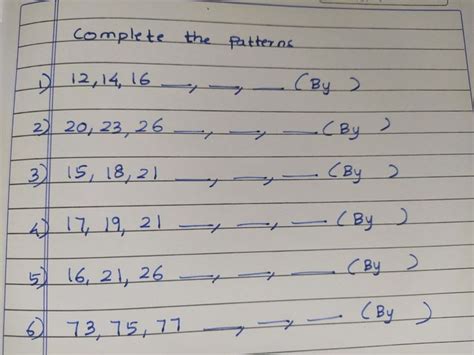 Complete the patterns
1) 12, 14, 16 __, __, __ (By )
2) 20, 23, 26 __, __, __ (By )
3) 15, 18, 21 __, __, __ (By )
4) 17, 19, 21 __, __, __ (By )
5) 16, 21, 26 __, __, __ (By )
6) 73, 75, 77 __, __, __ (By )